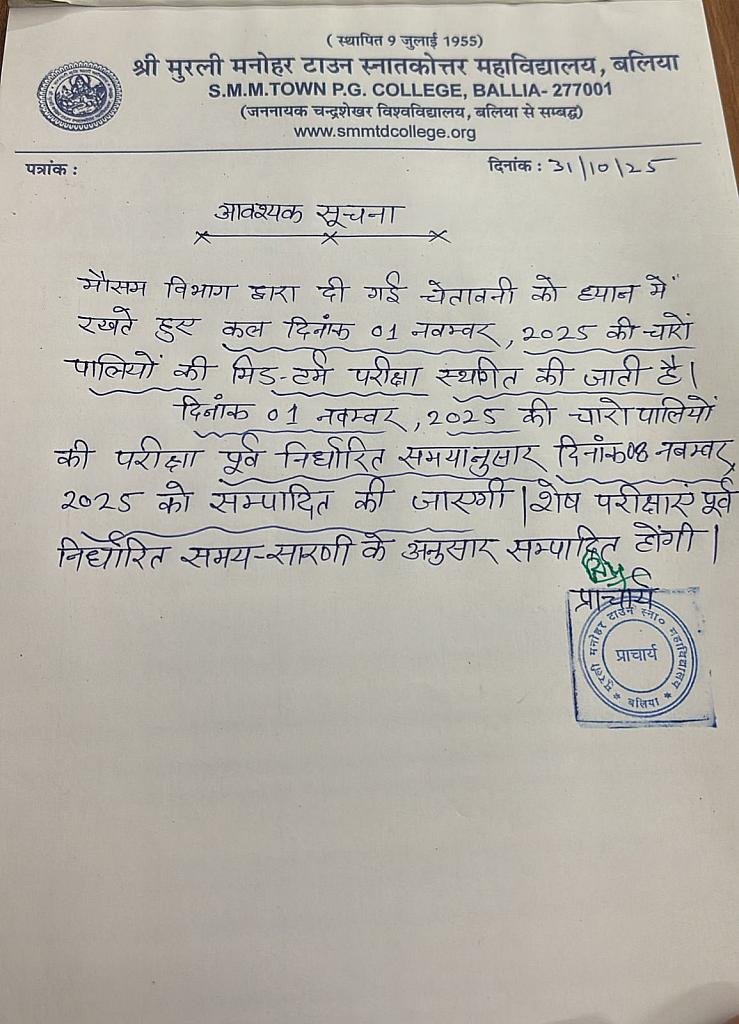 ( स्थापित 9 जुलाई 1955)
श्री मुरली मनोहर टाउन स्नातकोत्तर महाविद्यालय, बलिया
S.M.M.TOWN P.G. COLLEGE, BALLIA- 277001
(जननायक चन्द्रशेखर विश्वविद्यालय, बलिया से सम्बद्ध)
www.smmtdcollege.org
पत्रांक :
दिनांक : 31/10/25
आवश्यक सूचना
मौसम विभाग द्वारा दी गई चेतावनी को ध्यान में
रखते हुए कल दिनांक 01 नवम्बर, 2025 की चारों
पालियों की मिड-टर्म परीक्षा स्थगित की जाती है।
दिनांक 01 नवम्बर, 2025 की चारो पालियों
की परीक्षा पूर्व निर्धारित समयानुसार दिनांक 08 नबम्बर,
2025 को सम्पादित की जाएगी। शेष परीक्षाएं पूर्व
निर्धारित समय-सारणी के अनुसार सम्पादित होंगी।
प्राचार्य
मुरली मनोहर टाउन स्ना० महाविद्यालय
प्राचार्य
* बलिया *